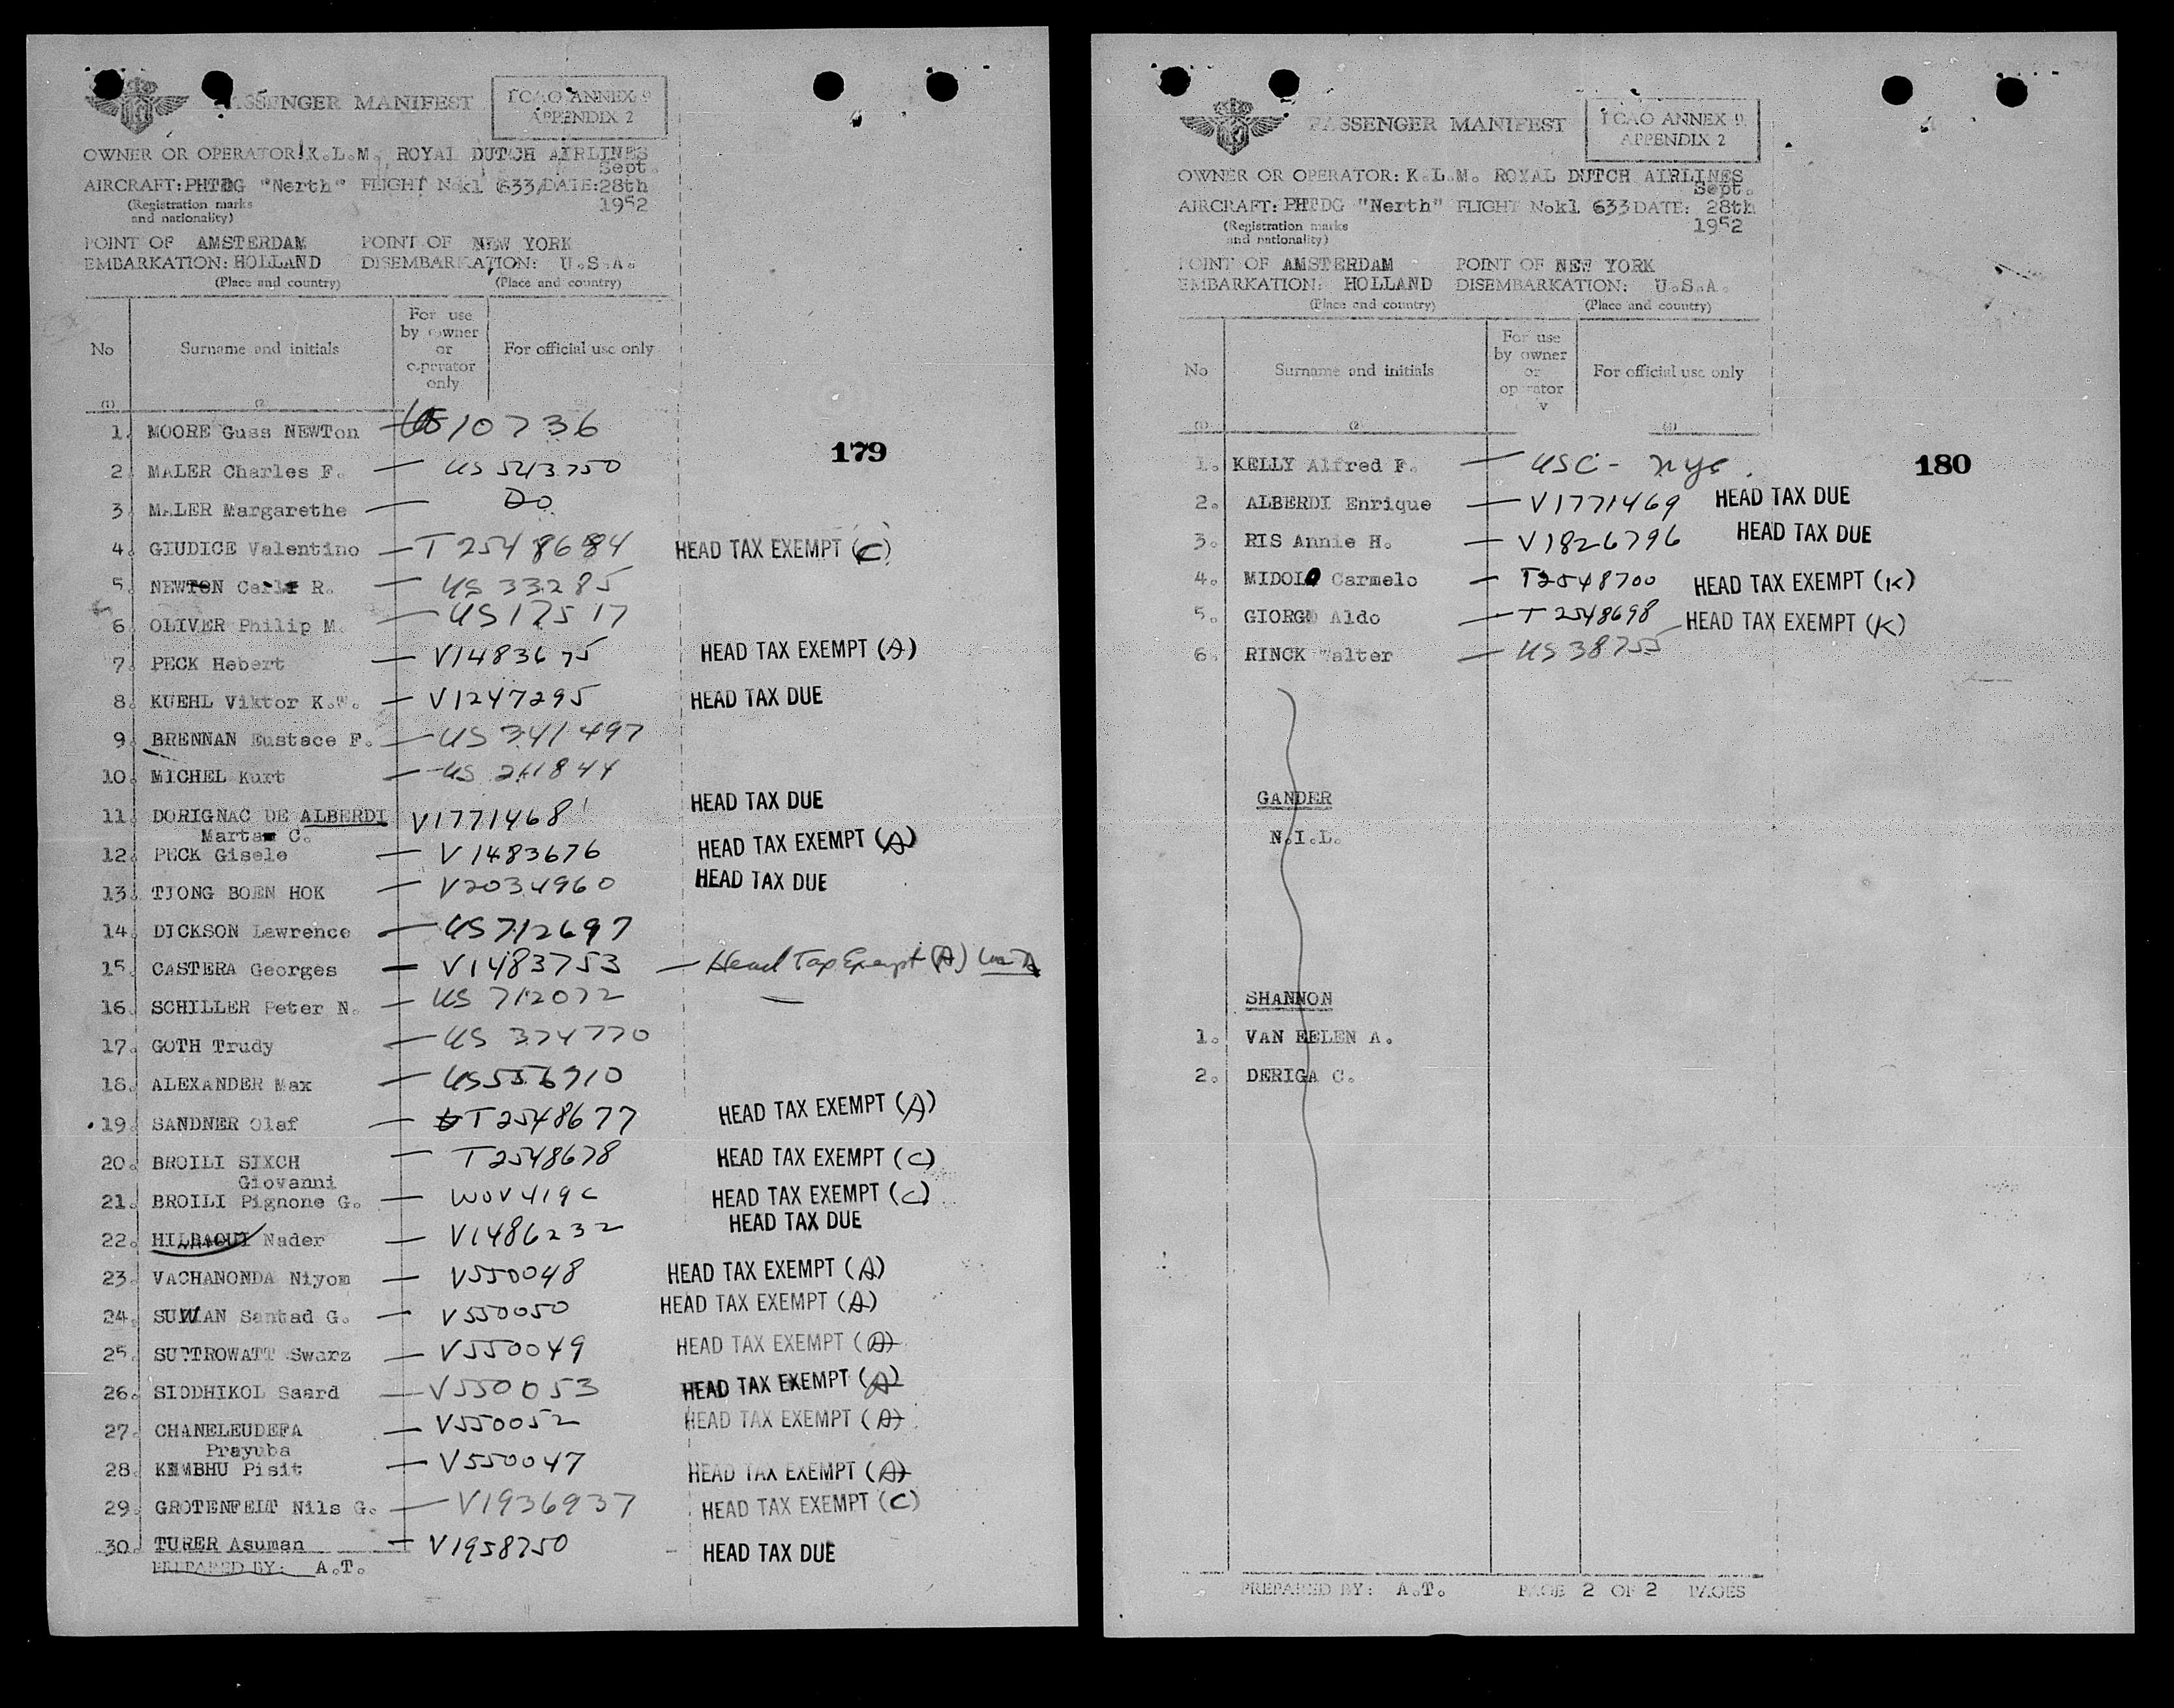 PASSENGER MANIFEST
ICAO ANNEX 9
APPENDIX 2
OWNER OR OPERATOR: K.L.M. ROYAL DUTCH AIRLINES
Sept.
AIRCRAFT: PHTDG "Nerth" FLIGHT No kl 633 DATE: 28th
(Registration marks 1952
and nationality)
POINT OF AMSTERDAM POINT OF NEW YORK
EMBARKATION: HOLLAND DISEMBARKATION: U.S.A.
(Place and country) (Place and country)
No Surname and initials For use by owner or operator only For official use only
(1) (2
1. MOORE Guss NEWTon US 10736
179
2. MALER Charles F. — US 543750
3. MALER Margarethe — Do
4. GIUDICE Valentino — T 2548684 HEAD TAX EXEMPT (C)
5. NEWTON Carl R. — US 33285
6. OLIVER Philip M. — US 17517
7. PECK Hebert — V1483675 HEAD TAX EXEMPT (A)
8. KUEHL Viktor K.W. — V1247295 HEAD TAX DUE
9. BRENNAN Eustace F. — US 341497
10. MICHEL Kurt — US 261844
11. DORIGNAC DE ALBERDI V1771468 HEAD TAX DUE
Marta C.
12. PECK Gisele — V1483676 HEAD TAX EXEMPT (A)
13. TJONG BOEN HOK — V2034960 HEAD TAX DUE
14. DICKSON Lawrence — US 712697
15. CASTERA Georges — V1483753 — Head Tax Exempt (A)
16. SCHILLER Peter N. — US 712072 —
17. GOTH Trudy — US 374770
18. ALEXANDER Max — US 556910
19. SANDNER Olaf — T2548677 HEAD TAX EXEMPT (A)
20. BROILI SIXCH — T2548678 HEAD TAX EXEMPT (C)
Giovanni
21. BROILI Pignone G. — WOV419C HEAD TAX EXEMPT (C)
22. HILBAOUI Nader — V1486232 HEAD TAX DUE
23. VACHANONDA Niyom — V550048 HEAD TAX EXEMPT (A)
24. SUWAN Santad G. — V550050 HEAD TAX EXEMPT (A)
25. SUTTROWATT Swarz — V550049 HEAD TAX EXEMPT (A)
26. SIDDHIKOL Saard — V550053 HEAD TAX EXEMPT (A)
27. CHANELEUDEFA — V550052 HEAD TAX EXEMPT (A)
Prayuba
28. KEMBHU Pisit — V550047 HEAD TAX EXEMPT (A)
29. GROTENFELT Nils G. — V1936937 HEAD TAX EXEMPT (C)
30. TURER Asuman — V1958750 HEAD TAX DUE
PREPARED BY: A.T.
PASSENGER MANIFEST
ICAO ANNEX 9
APPENDIX 2
OWNER OR OPERATOR: K.L.M. ROYAL DUTCH AIRLINES
Sept.
AIRCRAFT: PHTDG "Nerth" FLIGHT No kl 633 DATE: 28th
(Registration marks 1952
and nationality)
POINT OF AMSTERDAM POINT OF NEW YORK
EMBARKATION: HOLLAND DISEMBARKATION: U.S.A.
(Place and country) (Place and country)
No Surname and initials For use by owner or operator For official use only
(1) (2) (4)
1. KELLY Alfred F. — USC - nyc.
180
2. ALBERDI Enrique — V1771469 HEAD TAX DUE
3. RIS Annie H. — V1826796 HEAD TAX DUE
4. MIDOLO Carmelo — T2548700 HEAD TAX EXEMPT (K)
5. GIORGO Aldo — T2548698 HEAD TAX EXEMPT (K)
6. RINCK Walter — US 38755
GANDER
N.I.L.
SHANNON
1. VAN EELEN A.
2. DERIGA C.
PREPARED BY: A.T. PAGE 2 OF 2 PAGES